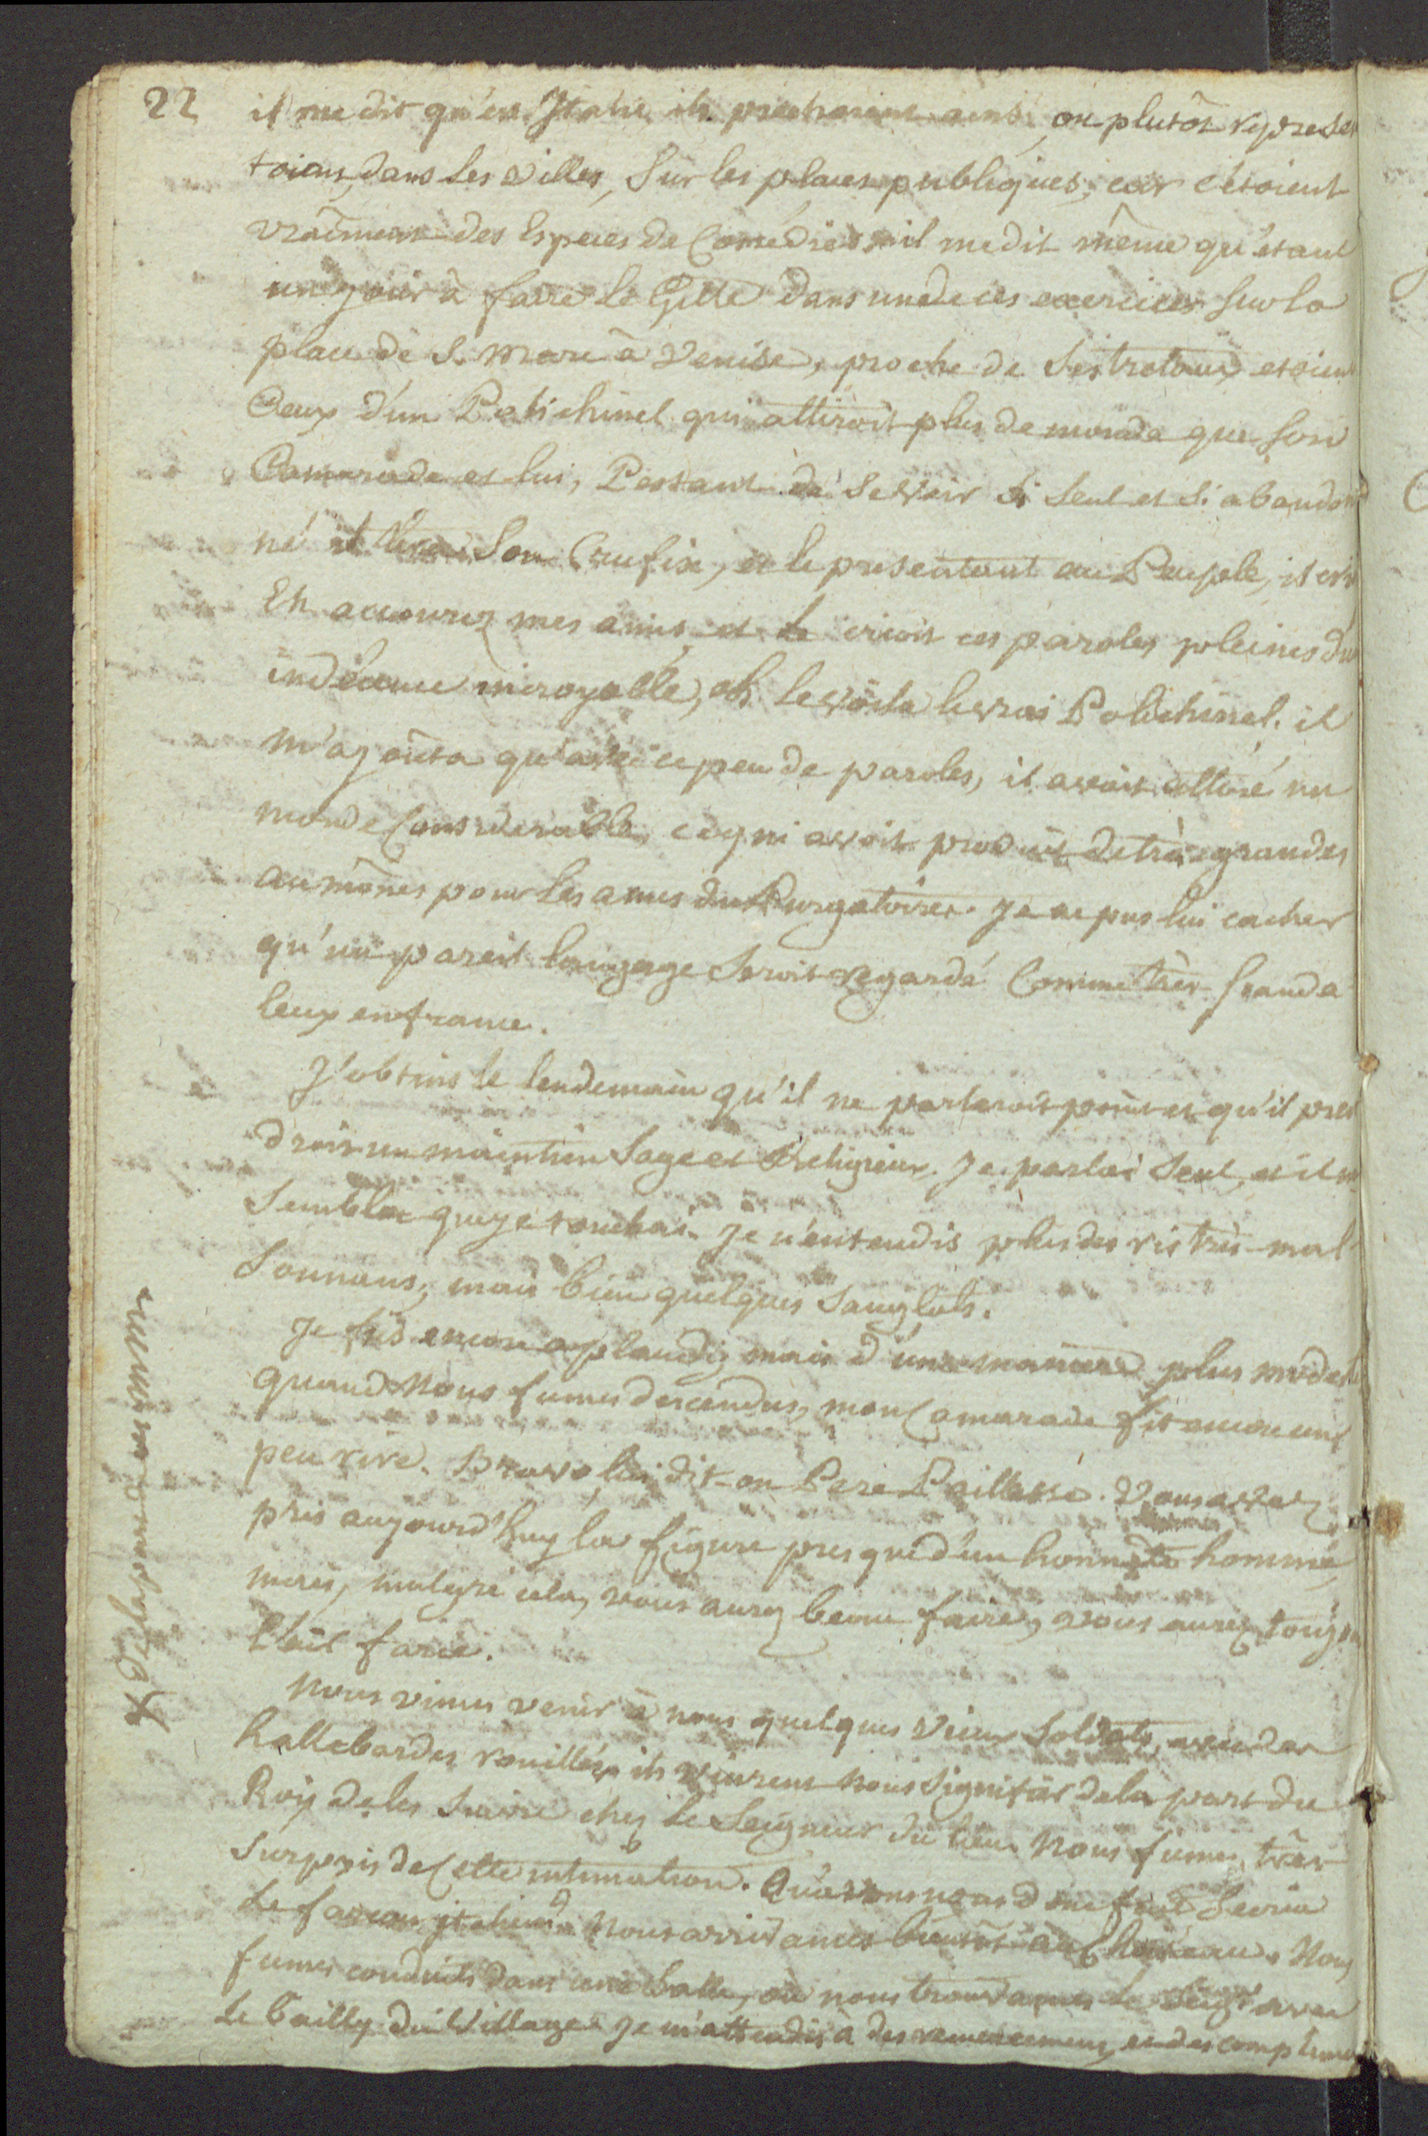 22
il me dit qu'en Italie ils prechoient ainsi, ou plutôt represen
toient, dans les Villes, Sur les places publiques, car c'étoient
vraiment des Especes de Comédies, il me dit même qu'etant
un jour à faire le Gille dans une de ces exercices Sur la
place de S. Marc à Venise, proche de Ses tretaux etoient
Ceux d'un Polichinel qui attiroit plus de monde que Son
Camarade et lui, Pestant de Se Voir Si Seul et Si abandon
né il tira Son Crucfix, et le presentant au Peuple, il cri
Eh accourez mes amis, et le crioit ces paroles pleines d'u
indécence incroyable, ah le voila le vrai Polichinel. il
m'ajoûta qu'avec ce peu de paroles, il avoit attiré un
monde Considerable, ce qui avoit produit de très grandes
aumônes pour les ames du Purgatoire. Je ne pus lui cacher
qu'un pareil langage Seroit regardé Comme très Scanda
leux en france.
J'obtins le lendemain qu'il ne parleroit point et qu'il pren
droit un maintien Sage et Religieux. Je parlai Seul, et il m
Sembla que je touchai. Je n'entendis plus des ris très-mal
Sonnans, mais bien quelques Sanglots.
Je fus encore aplaudi, mais d'une maniere plus modes
quand Nous fumes descendus, mon Camarade fit encore un
peu rire. Bravo lui dit-on Pere Paillasse. Vous avez
pris aujourd'huy la figure presque d'un honnête homme,
mais, malgré cela, vous aurez beau faire, vous aurez toujou
l'œil farci.
Nous vimes venir à nous quelques Vieux Soldats, avec des
hallebardes rouillées, ils vinrent nous Signifier de la part du
Roy de les Suivre chez le Seigneur du lieu. Nous fumes très
Surpris de Cette intimation. Qu'avons nous donc fait S'ecria
le farceur italien? Nous arrivames bientôt au Chateau. Nous
fumes conduits dans une Salle, où nous trouvames le Seigr avec
le Bailly du Village. Je m'attendis à des remerciemens, et des complimen